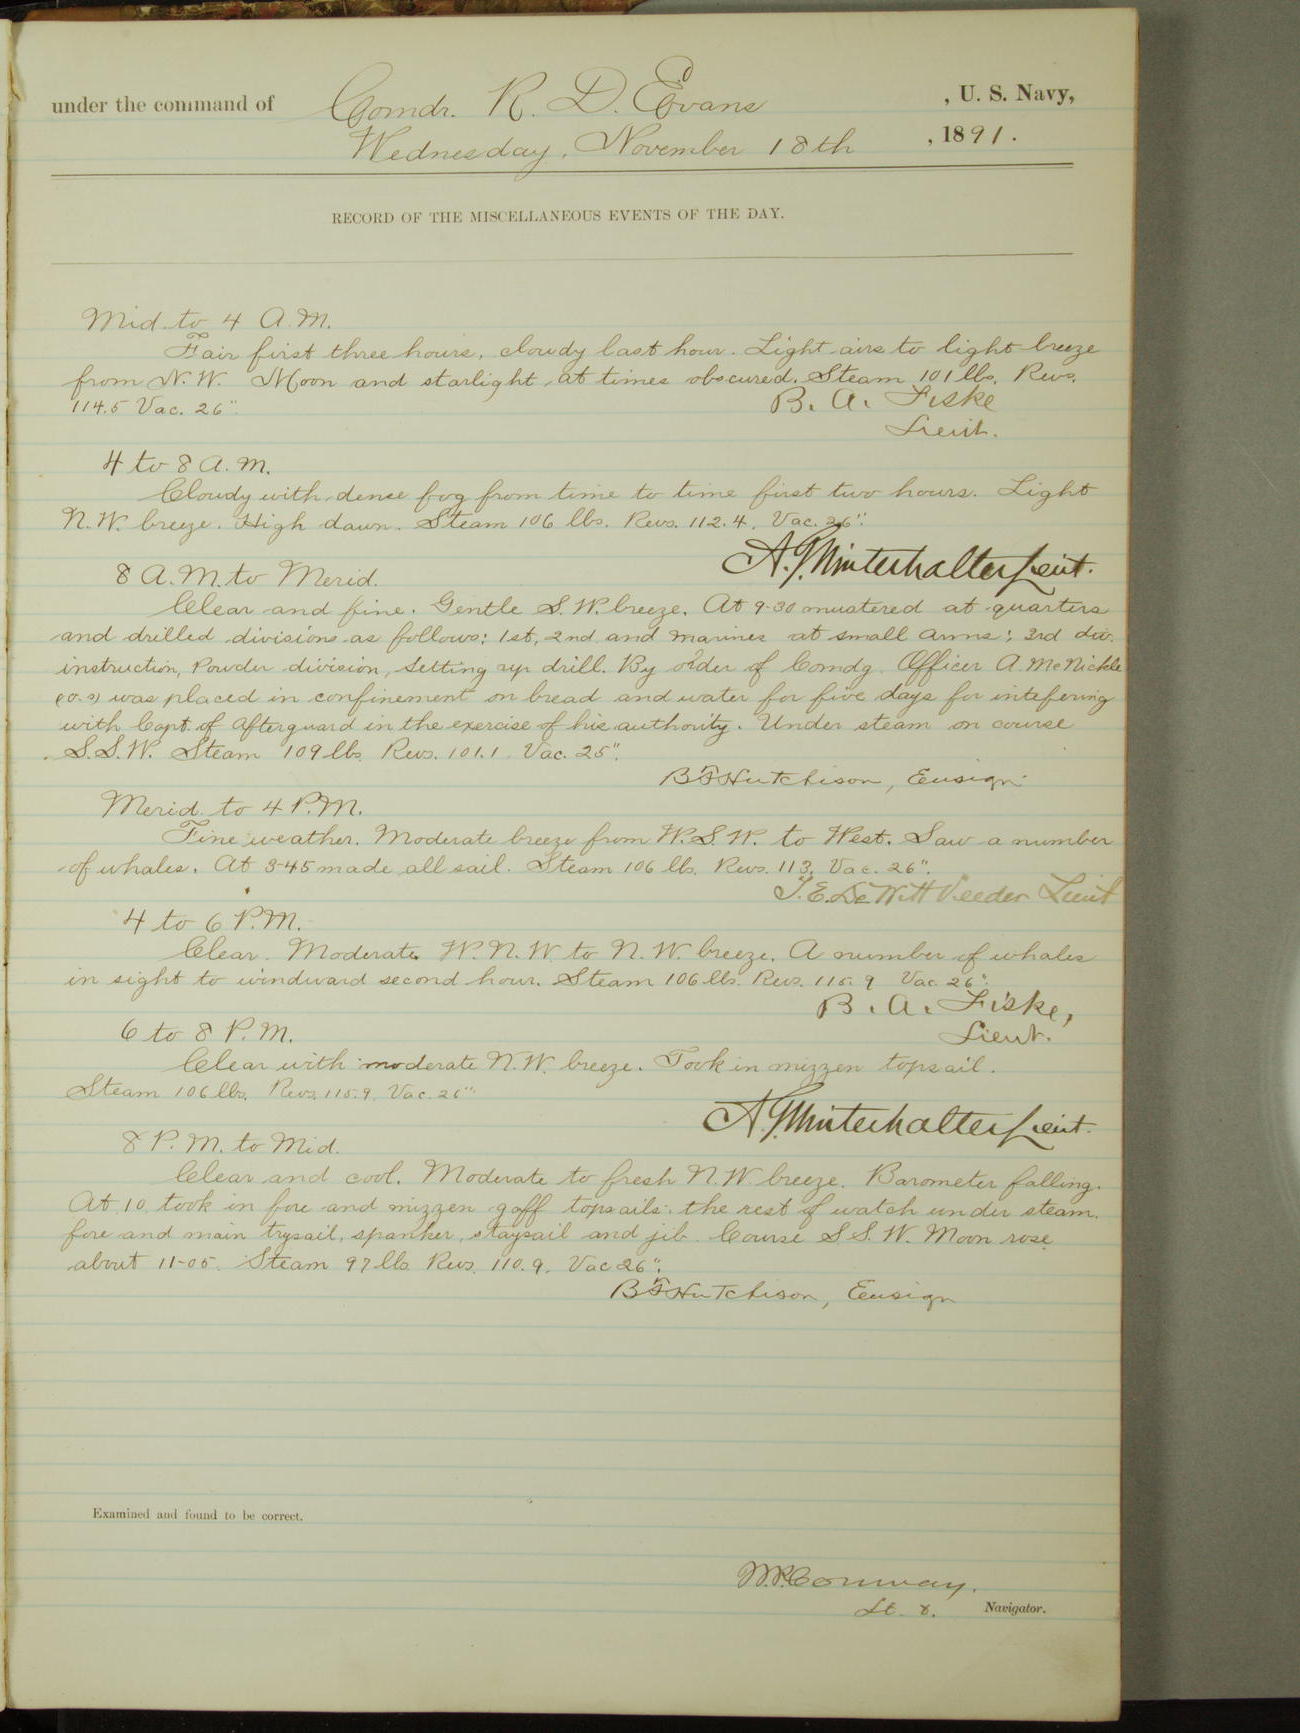 under the command of Comdr. R. D. Evans, U. S. Navy,
Wednesday, November 18th, 1891.
RECORD OF THE MISCELLANEOUS EVENTS OF THE DAY.
Mid. to 4 A.M.
Fair first three hours, cloudy last hour. Light airs to light breeze
from N.W. Moon and starlight at times obscured. Steam 101 lbs. Revs.
114.5 Vac. 26".
B. A. Fiske
Lieut.
4 to 8 A.M.
Cloudy with dense fog from time to time first two hours. Light
N.W. breeze. High dawn. Steam 106 lbs. Revs. 112.4. Vac. 26".
A.G. Winterhalter Lieut.
8 A.M. to Merid.
Clear and fine. Gentle S.W. breeze. At 9-30 mustered at quarters
and drilled divisions as follows: 1st, 2nd and marines at small arms; 3rd div.
instruction, Powder division, setting up drill. By order of Comdg. Officer A. McNickle
was placed in confinement on bread and water for five days for intefering
with Capt. of Afterguard in the exercise of his authority. Under steam on course
S.S.W. Steam 109 lbs. Revs. 101.1. Vac. 25".
B F Hutchison, Ensign
Merid. to 4 P.M.
Fine weather. Moderate breeze from W.S.W. to West. Saw a number
of whales. At 3-45 made all sail. Steam 106 lbs. Revs. 113. Vac. 26".
T.E. DeWitt Veeder Lieut
4 to 6 P.M.
Clear. Moderate W.N.W. to N.W. breeze. A number of whales
in sight to windward second hour. Steam 106 lbs. Revs. 115.9 Vac. 26".
B. A. Fiske,
Lieut.
6 to 8 P.M.
Clear with moderate N.W. breeze. Took in mizzen topsail.
Steam 106 lbs. Revs. 115.9. Vac. 26"
A.G. Winterhalter Lieut.
8 P.M. to Mid.
Clear and cool. Moderate to fresh N.W. breeze. Barometer falling.
At 10 took in fore and mizzen gaff topsails: the rest of watch under steam,
fore and main trysail, spanker, staysail and jib. Course S.S.W. Moon rose
about 11-05. Steam 97 lbs. Revs. 110.9. Vac 26".
B F Hutchison, Ensign
Examined and found to be correct.
W.P. Conway,
Lt. &. Navigator.